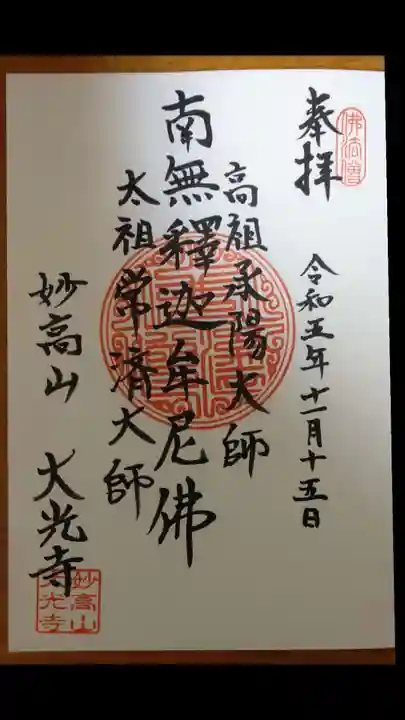 佛法僧
奉拝
令和五年十一月十五日
高祖承陽大師
南無釋迦牟尼佛
太祖常済大師
妙高山 大光寺
妙高山
大光寺